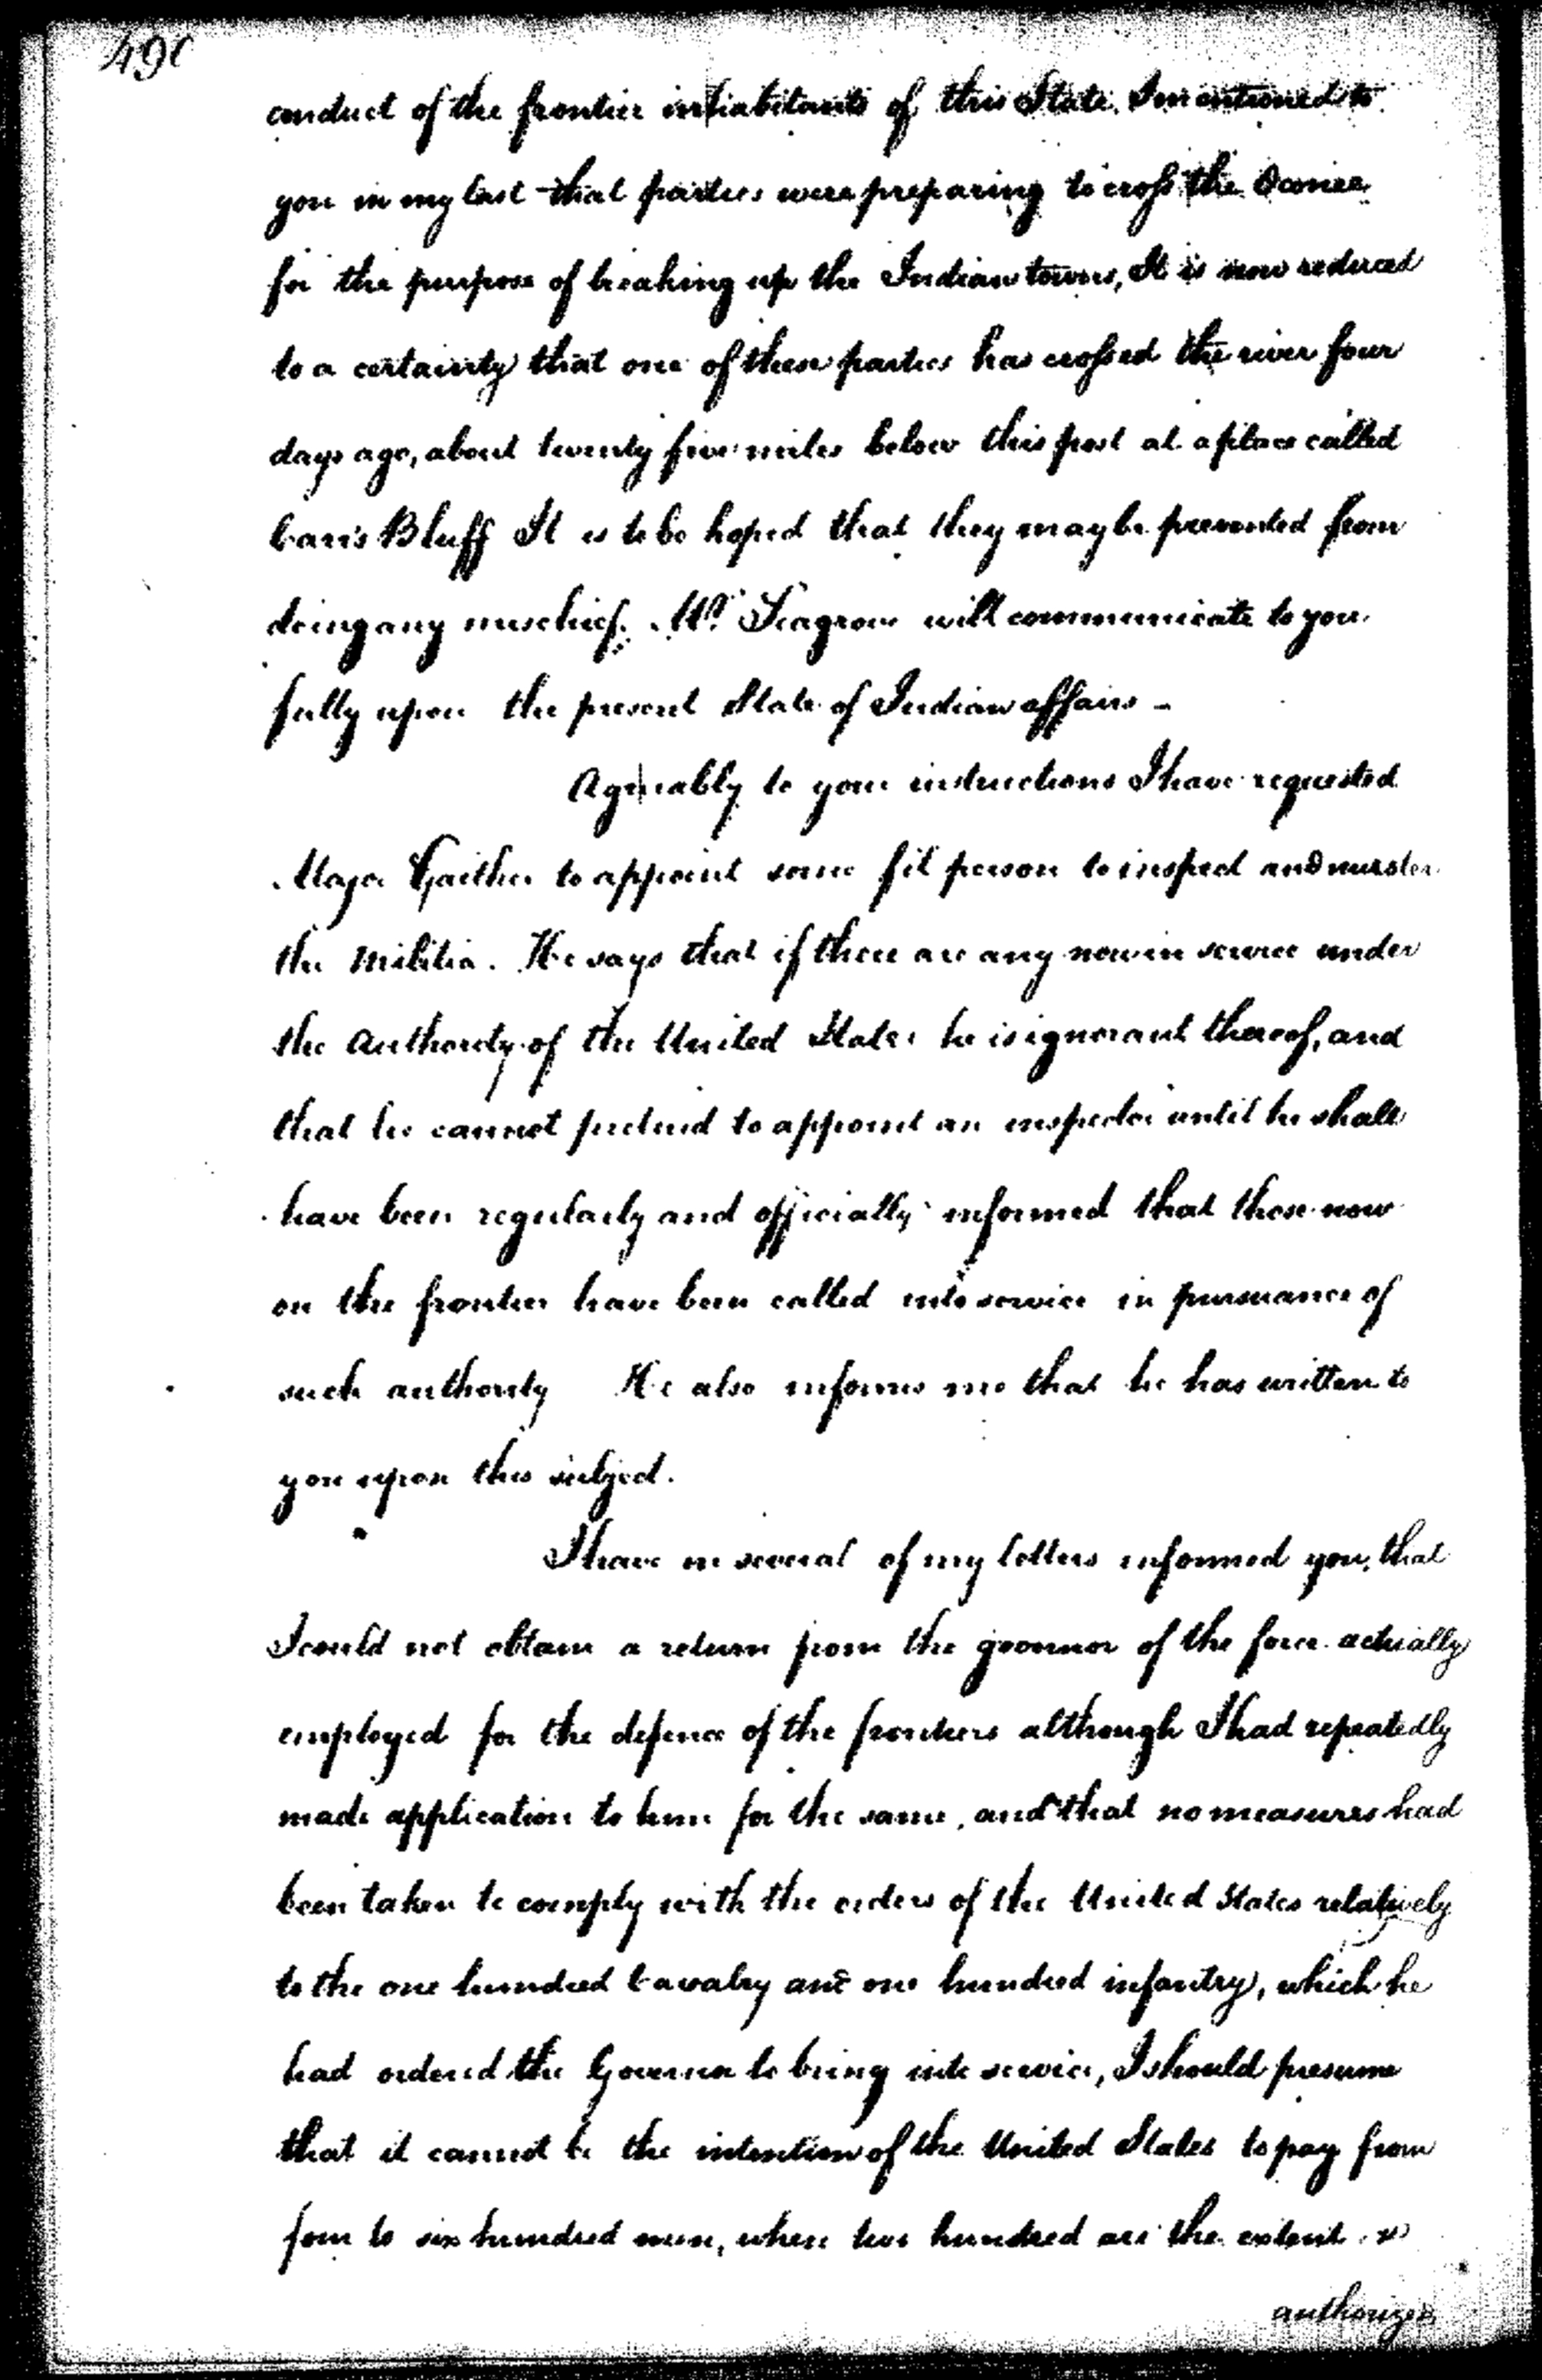 490
conduct of the frontier inhabitants of this State. I mentioned to
you in my last that parties were preparing to cross the Oconee
for the purpose of breaking up the Indian towns, It is now reduced
to a certainty that one of these parties has crossed the river four
days ago, about twenty five miles below this post at a place called
Carr's Bluff It is to be hoped that they may be prevented from
doing any mischief. Mr. Seagrove will communicate to you
fully upon the present State of Indian affairs -
Agreeably to your instructions I have requested
Major Gaither to appoint some fit person to inspect and muster
the Militia. He says that if there are any now in service under
the Authority of the United States he is ignorant thereof, and
that he cannot pretend to appoint an inspector until he shall
have been regularly and officially informed that those now
on the frontier have been called into service in pursuance of
such authority He also informs me that he has written to
you upon this subject.
I have in several of my letters informed you, that
I could not obtain a return from the governor of the force actually
employed for the defence of the frontiers although I had repeatedly
made application to him for the same, and that no measures had
been taken to comply with the orders of the United States relatively
to the one hundred Cavalry and one hundred infantry, which he
had ordered the Governor to bring into service, I should presume
that it cannot be the intention of the United States to pay from
four to six hundred men, when two hundred are the extent
authorized